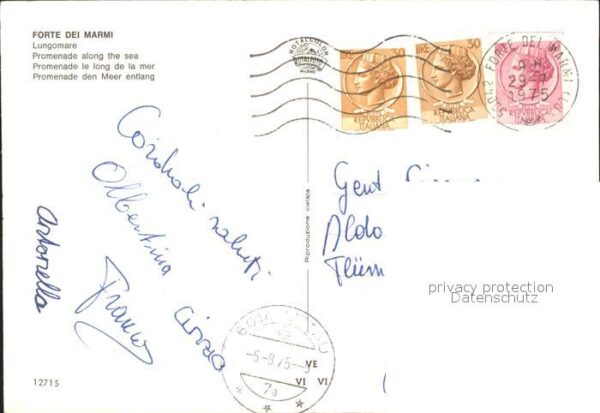 FORTE DEI MARMI
Lungomare
Promenade along the sea
Promenade le long de la mer
Promenade den Meer entlang
ROTALCOLOR
MILANO
LIRE 30
REPVBBLICA
ITALIANA
LIRE 30
REPVBBLICA
ITALIANA
REPVBBLICA
ITALIANA
FORTE DEI MARMI
9-8
1975
Cordiali saluti
Albertina
Franco
Antonella
Riproduzione vietata
Gent
Aldo
privacy protection
Datenschutz
-5-9.75-
7a
VE
VI VI
12715